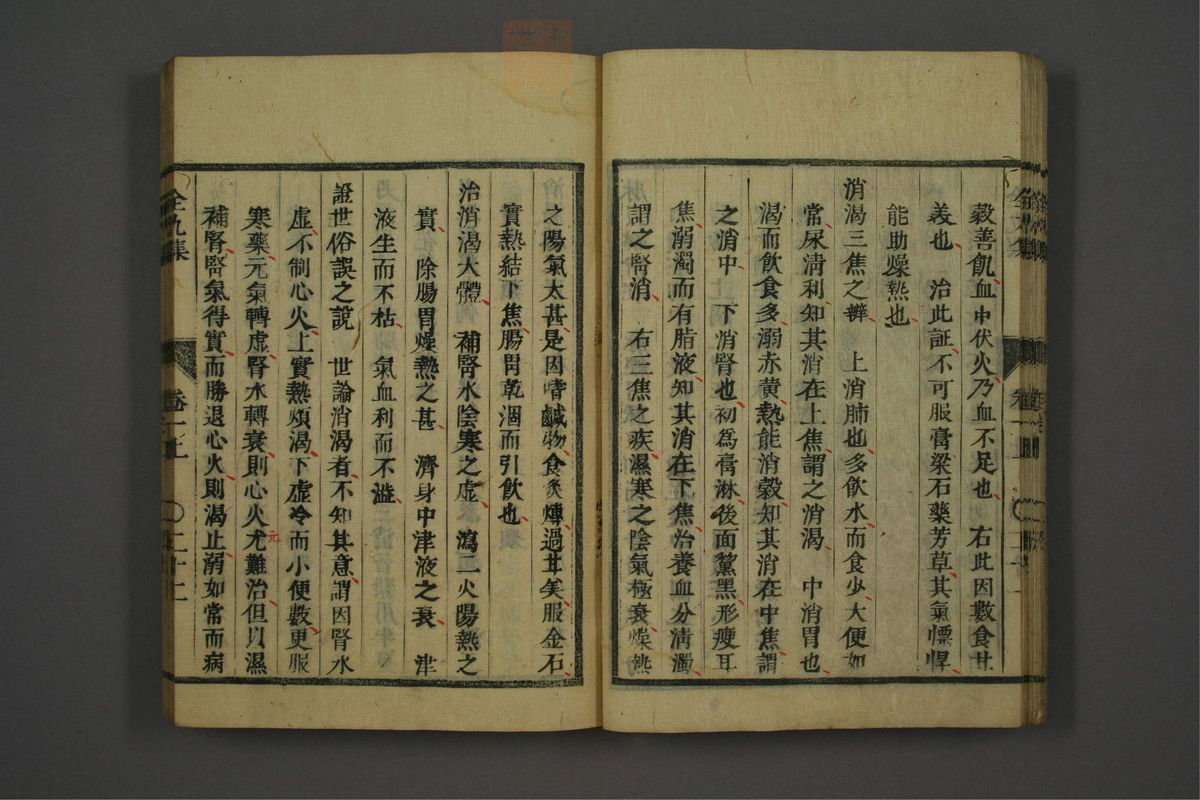 穀善飢血中伏火乃血不足也 右此因數食甘
羙也 治此証不可服膏梁石藥芳草其氣慓悍
能助燥热也
消渴三焦之辨 上消肺也多飲水而食少大便如
常尿清利知其消在上焦謂之消渴 中消胃也
渴而飲食多溺赤黄熱能消穀知其消在中焦謂
之消中 下消腎也初為膏淋後面黧黑形瘦耳
焦溺濁而有脂液知其消在下焦治養血分清濁
謂之腎消 右三焦之疾濕寒之陰氣極衰燥热
之陽氣太甚是因嗜鹹物食炙煿過甘美服金石
實熱結下焦腸胃乾涸而引飲也
治消渴大體 補腎水陰寒之虚 瀉二火陽熱之
實 除腸胃燥熱之甚 濟身中津液之衰 津
液生而不枯 氣血利而不澁
證世俗誤之說 世論消渴者不知其意謂因腎水
虚不制心火上實熱煩渴下虚冷而小便數更服
寒藥元氣轉虚腎水轉衰則心火尤難治但以濕
元
補腎腎氣得實而勝退心火則渴止溺如常而病
全九集
卷一上
二十二